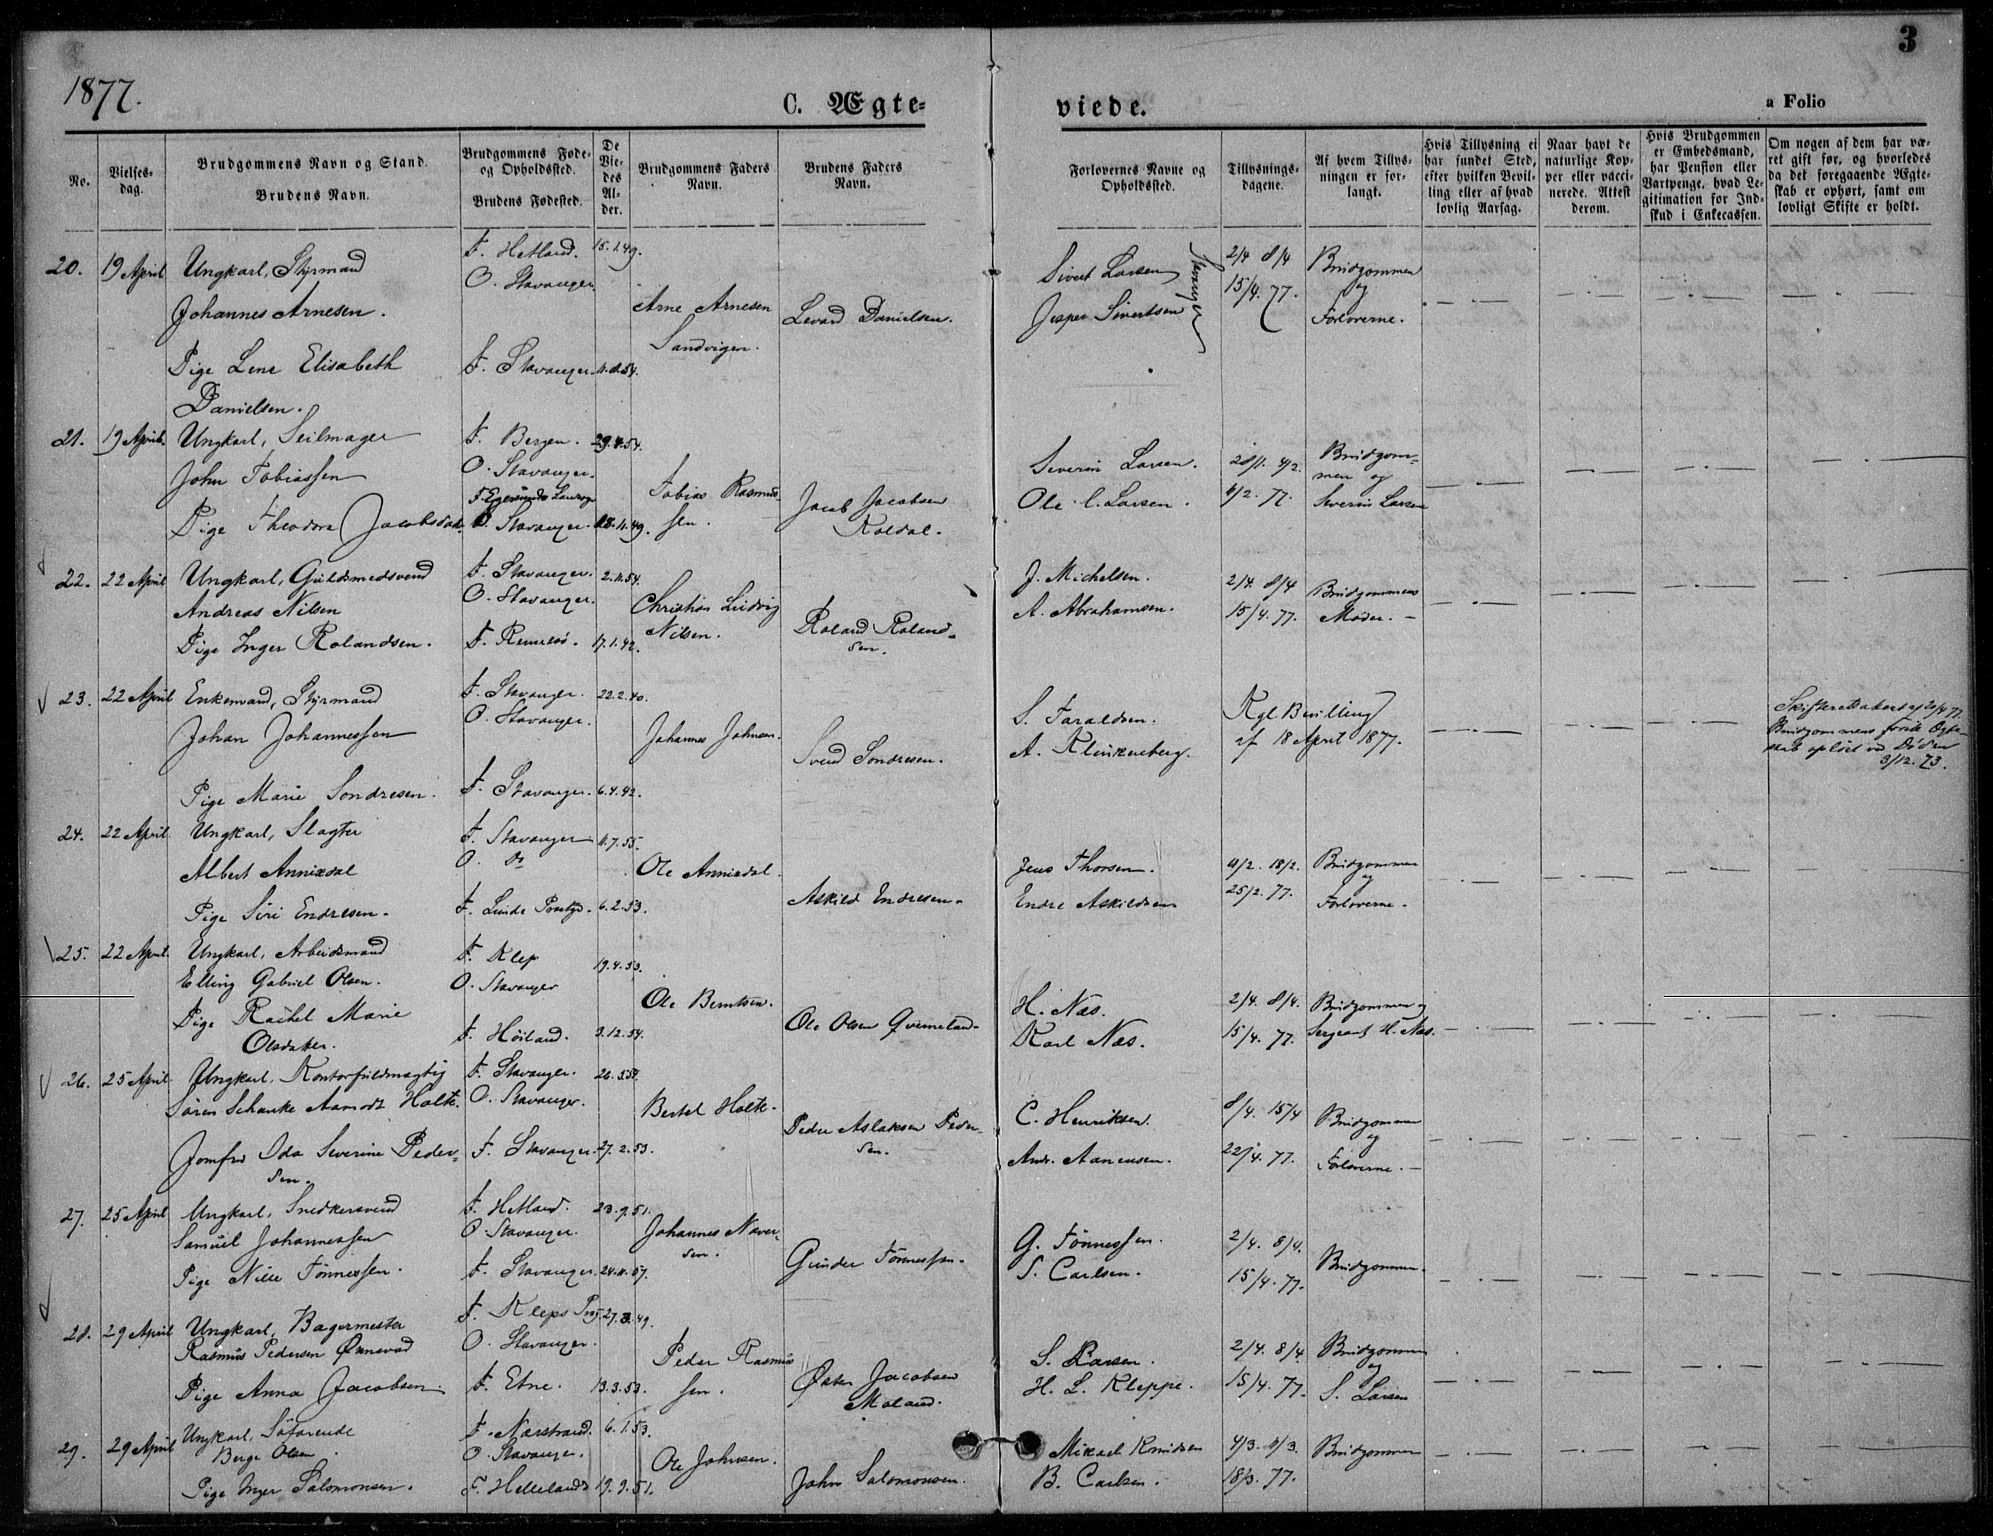 3
1877.
C. Ægte-
viede.
a Folio
No.
Vielses-
dag.
Brudgommens Navn og Stand.
Brudens Navn.
Brudgommens Føde-
og Opholdssted.
Brudens Fødested.
De
Vie-
des
Al-
der.
Brudgommens Faders
Navn.
Brudens Faders
Navn.
Forlovernes Navne og
Opholdssted.
Tillysnings-
dagene.
Af hvem Tillys-
ningen er for-
langt.
Hvis Tillysning ei
har fundet Sted,
efter hvilken Bevil-
ling eller af hvad
lovlig Aarsag.
Naar havt de
naturlige Kop-
per eller vacci-
nerede. Attest
derom.
Hvis Brudgommen
er Embedsmand,
har Pension eller
Vartpenge, hvad Le-
gitimation for Ind-
skud i Enkecassen.
Om nogen af dem har væ-
ret gift før, og hvorledes
da det foregaaende Ægte-
skab er ophørt, samt om
lovligt Skifte er holdt.
20. 19 April
Ungkarl, Styrmand
Johannes Arnesen.
Pige Lene Elisabeth
Danielsen.
F. Hetland. 15.1.49.
O. Stavanger.
F. Stavanger. 11.8.54.
Arne Arnesen
Sandvigen.
Levard Danielsen.
Sivert Larsen
Jesper Sivertsen
Stavanger
2/4 8/4
15/4. 77.
Brudgommen
og
Forloverne.
21. 19 April.
Ungkarl, Seilmager
John Tobiassen
Pige Theodora Jacobsdat.
F. Bergen. 29.4.54.
O. Stavanger.
F. Egersunds Landsogn
O. Stavanger. 18.11.49.
Tobias Rasmus-
sen.
Jacob Jacobsen
Koldal.
Severin Larsen.
Ole C. Larsen.
28/1. 4/2.
11/2. 77.
Brudgom-
men og
Severin Larsen
22. 22 April
Ungkarl, Guldsmedsvend
Andreas Nilsen
Pige Inger Rolandsen.
F. Stavanger. 2.11.54.
O. Stavanger.
F. Rennesø. 17.1.42.
Christian Ludvig
Nilsen.
Roland Roland-
sen.
J. Michelsen.
A. Abrahamsen.
2/4. 8/4
15/4. 77.
Brudgommens
Moder.
23. 22 April
Enkemand, Styrmand
Johan Johannessen
Pige Marie Sondresen.
F. Stavanger. 22.2.40.
O. Stavanger.
F. Stavanger. 6.4.42.
Johannes Johnsen.
Svend Sondresen.
S. Taraldsen.
A. Klinkenberg.
Kgl. Bevilling
af 18 April 1877.
Skifteretsattest af 20/4 77.
Brudgommens forrige Ægte-
skab opløst ved Døden
3/12. 73.
24. 22 April.
Ungkarl, Slagter
Albert Anniksdal
Pige Siri Endresen.
F. Stavanger 11.7.55.
O. do
F. Lunde Præstgj. 6.2.53.
Ole Anniksdal.
Askild Endresen.
Jens Thorsen.
Endre Askildsen
11/2. 18/2.
25/2. 77.
Brudgommen
og
Forloverne.
25. 22 April.
Ungkarl, Arbeidsmand
Elling Gabriel Olsen.
Pige Rachel Marie
Olsdatter.
F. Klep 19.4.53.
O. Stavanger
F. Høiland. 9.12.54.
Ole Berntsen.
Ole Olsen Qverneland.
H. Næs.
Karl Næs.
2/4. 8/4.
15/4. 77.
Brudgommen og
Sergeant H. Næs.
26. 25 April.
Ungkarl, Kontorfuldmægtig
Søren Schancke Aamodt Holte.
Jomfru Oda Severine Peder-
sen.
F. Stavanger. 26.5.51.
O. Stavanger.
F. Stavanger. 27.2.53.
Bertel Holte.
Peder Aslaksen Peder-
sen.
C. Henriksen.
Andr. Aanensen.
8/4. 15/4
22/4. 77.
Brudgommen
og
Forloverne.
27. 25 April
Ungkarl, Snedkersvend
Samuel Johannessen
Pige Nille Tønnessen.
F. Hetland. 23.9.51.
O. Stavanger.
F. Stavanger. 24.11.57.
Johannes Naver-
sen.
Gunder Tønnessen.
G. Tønnessen.
S. Carlsen.
2/4. 8/4.
15/4. 77.
Brudgommen.
28. 29 April
Ungkarl, Bagermester
Rasmus Pedersen Øxnevad
Pige Anna Jacobsen.
F. Kleps Prgj. 27.3.49.
O. Stavanger.
F. Etne. 13.3.53.
Peder Rasmus-
sen.
Østen Jacobsen
Moland.
S. Larsen.
H. L. Kleppe.
2/4. 8/4.
15/4. 77.
Brudgommen
og
S. Larsen
29. 29 April
Ungkarl, Søfarende
Berge Olsen.
Pige Inger Salomonsen.
F. Nærstrand. 6.1.53.
O. Stavanger.
F. Helleland 19.9.51.
Ole Johnsen.
John Salomonsen.
Mikael Knudsen
B. Carlsen.
4/3. 11/3.
18/3. 77.
Brudgommen